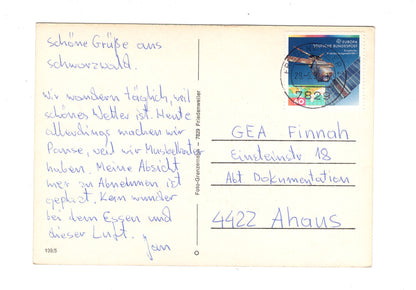 schöne Grüße aus
schwarzwald.
Wir wandern täglich, weil
schönes Wetter ist. Heute
allerdings machen wir
Pause, weil wir Muskelkater
haben. Meine Absicht
hier zu Abnehmen ist
geplazt. Kein wunder
bei dem Essen und
dieser Luft.
Jan
139/5
Foto-Grenzemann - 7829 Friedenweiler
EUROPA
DEUTSCHE BUNDESPOST
7829
GEA Finnah
Einsteinstr 18
Abt Dokumentation
4422 Ahaus